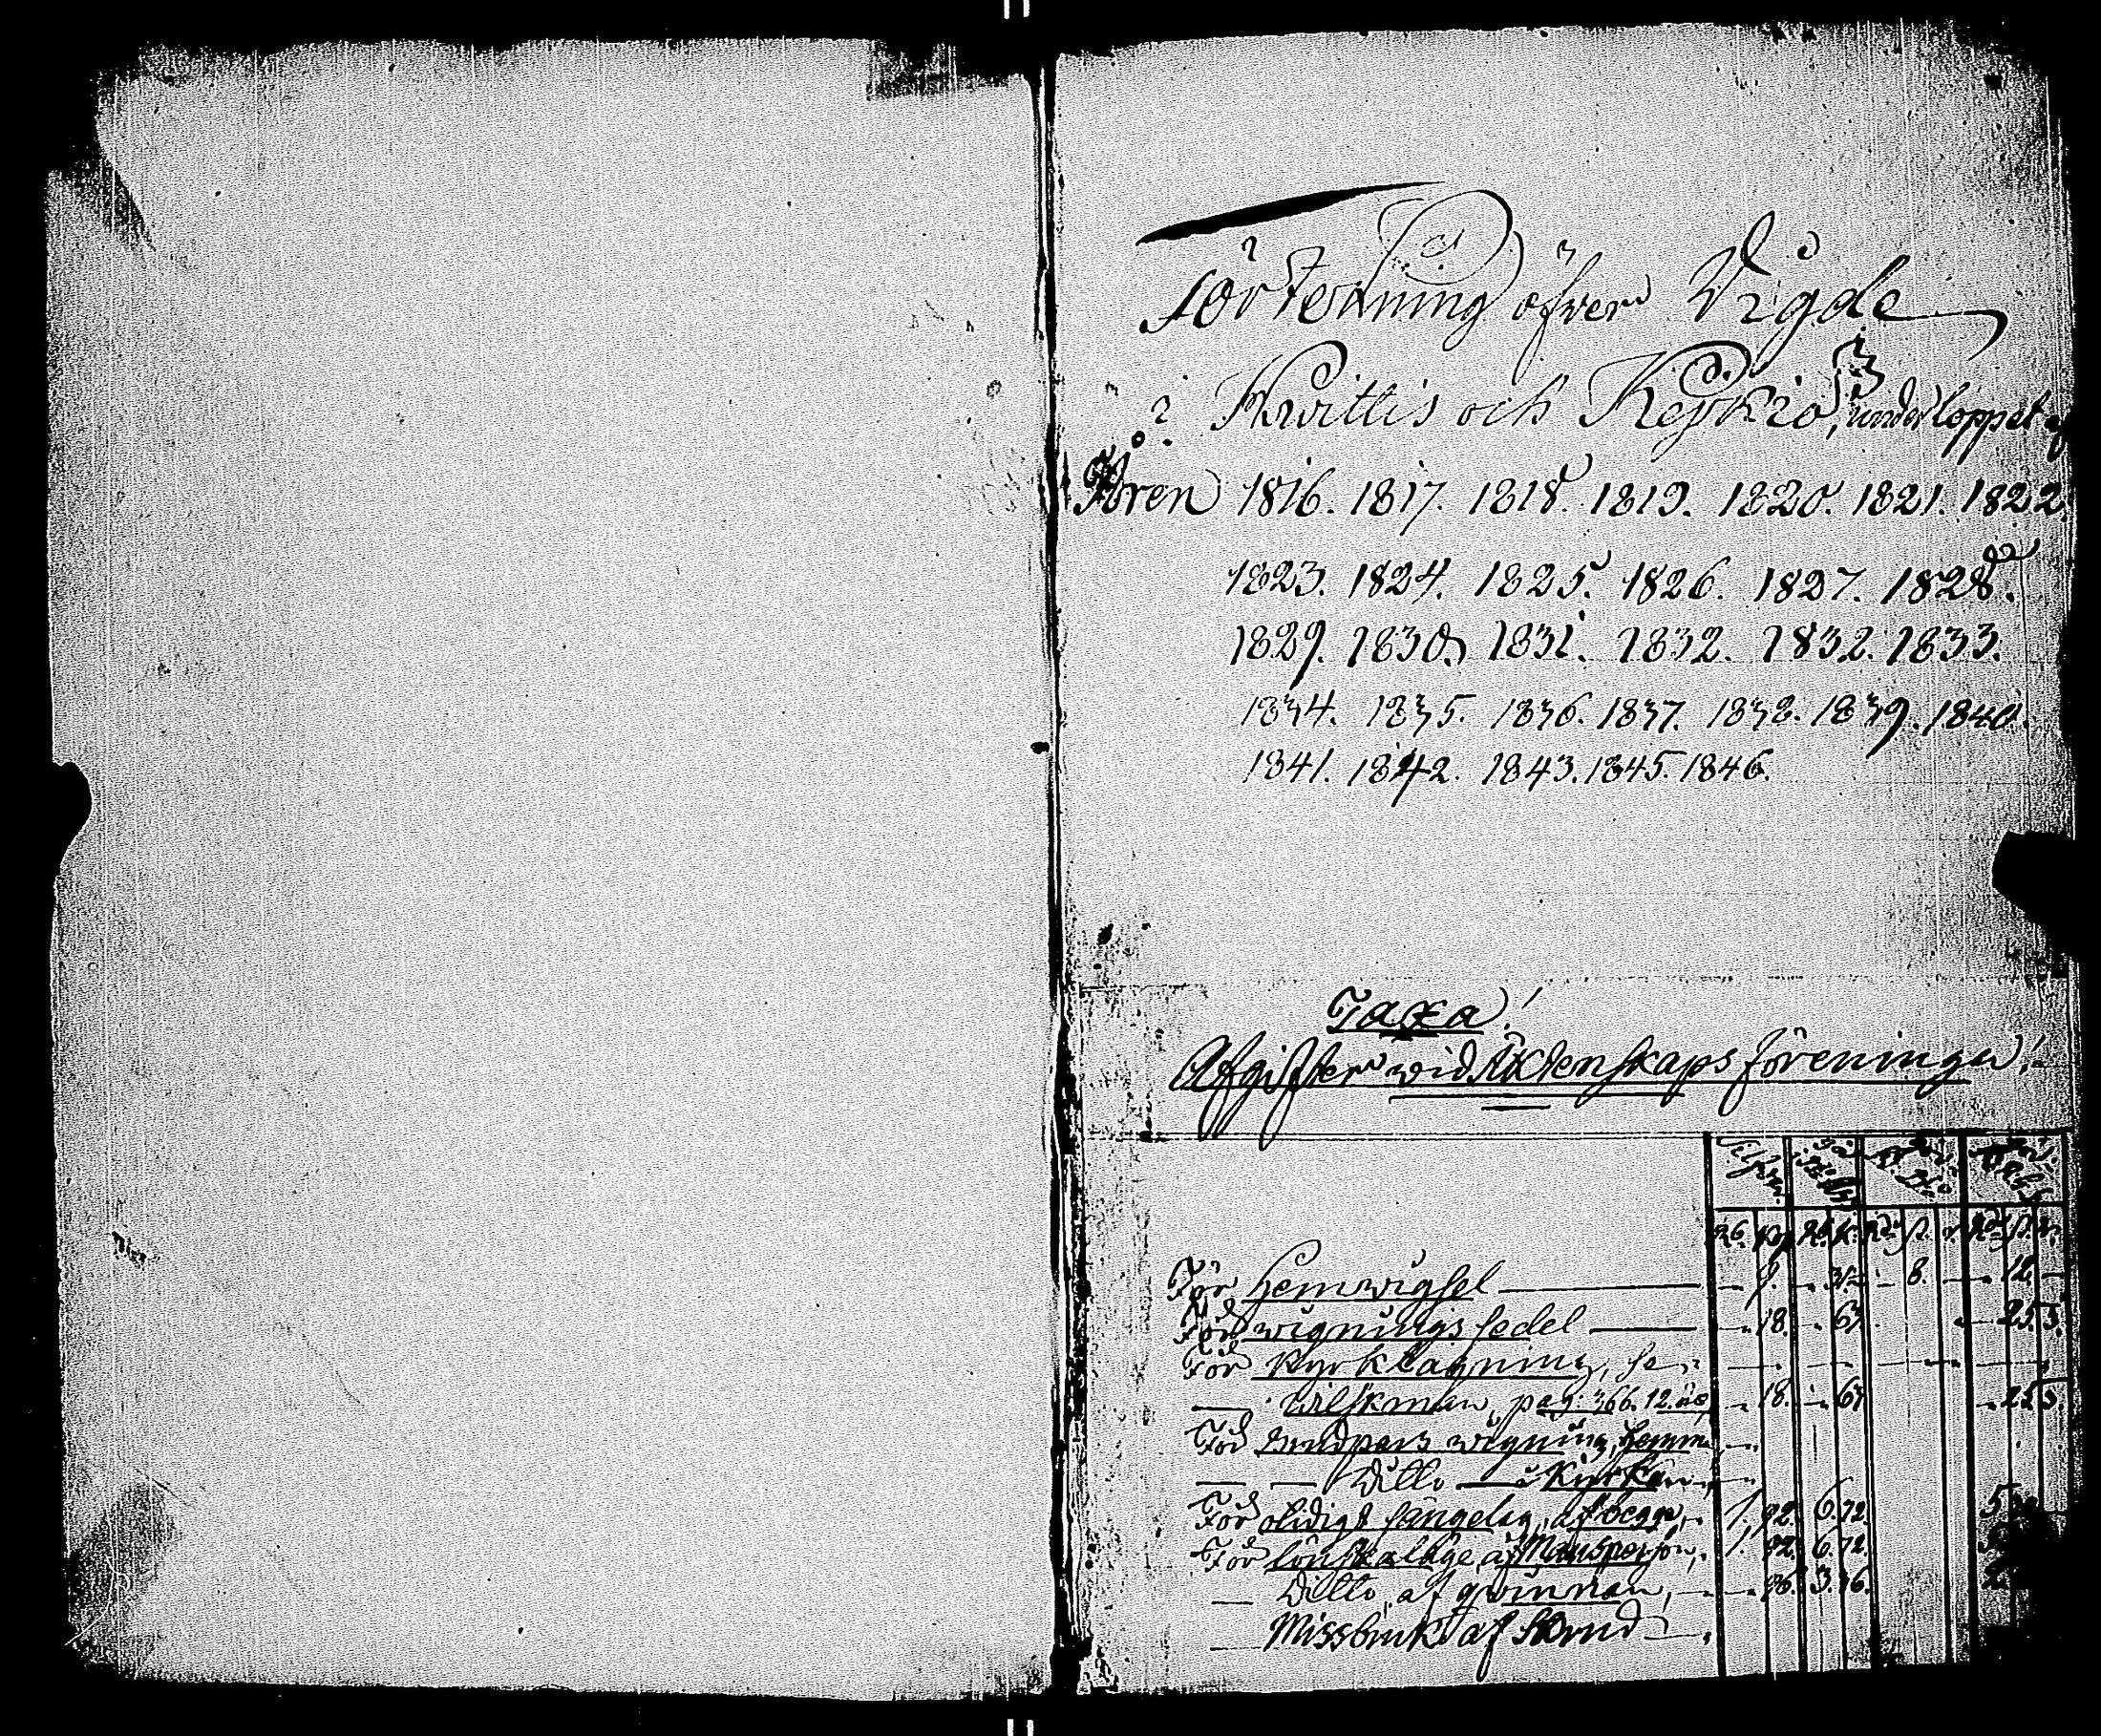 Förtekning öfver Vigde
i Hvittis och Keykiö, under loppet af
Åren 1816. 1817. 1818. 1819. 1820. 1821. 1822.
1823. 1824. 1825. 1826. 1827. 1828.
1829. 1830. 1831. 1832. 1832. 1833.
1834. 1835. 1836. 1837. 1838. 1839. 1840.
1841. 1842. 1843. 1845. 1846.
Taxa!
Afgifter vid Äktenskaps föreningar!
För hemvigsel 8.
För vignings sedel 18. 67. 25. 5.
För kyrktagning, se
Wilskman, pag: 366. 12. 18. 67. 25. 5.
För brudpars vigning, hemma
Ditto i Kyrkan
För otidigt sängelag, af begge, 1. 92. 6. 72. 5
För lönskaläge, af Mansperson, 1. 92. 6. 72. 5
Ditto, af qvinnan, 96. 3. 36. 2.
Missbruk af